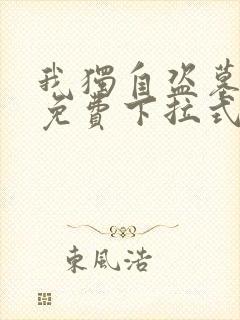 我獨自盜墓
免費下拉式
東風浩